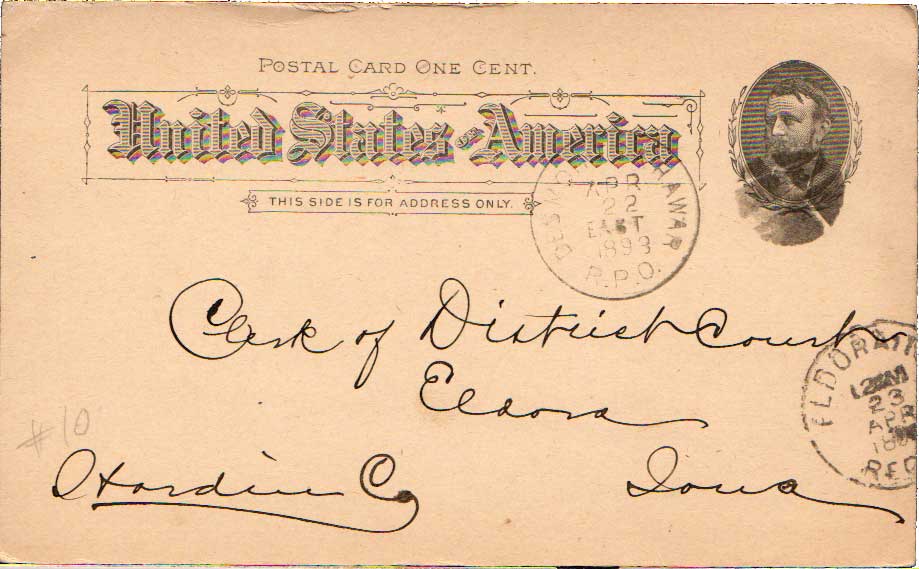 POSTAL CARD ONE CENT.
United States of America
THIS SIDE IS FOR ADDRESS ONLY.
DES MO HAWAR
APR
22
EAST
1893
R.P.O.
Clerk of District Court
Eldora
Hardin Co
Iowa
#10
ELDORA
23
APR
18
REC